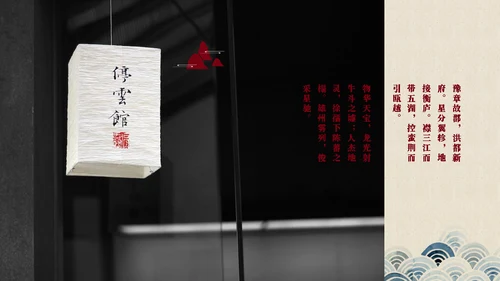 豫章故郡，洪都新
府。星分翼轸，地
接衡庐。襟三江而
带五湖，控蛮荆而
引瓯越。
物华天宝，龙光射
牛斗之墟；人杰地
灵，徐孺下陈蕃之
榻。雄州雾列，俊
采星驰。
停雲館